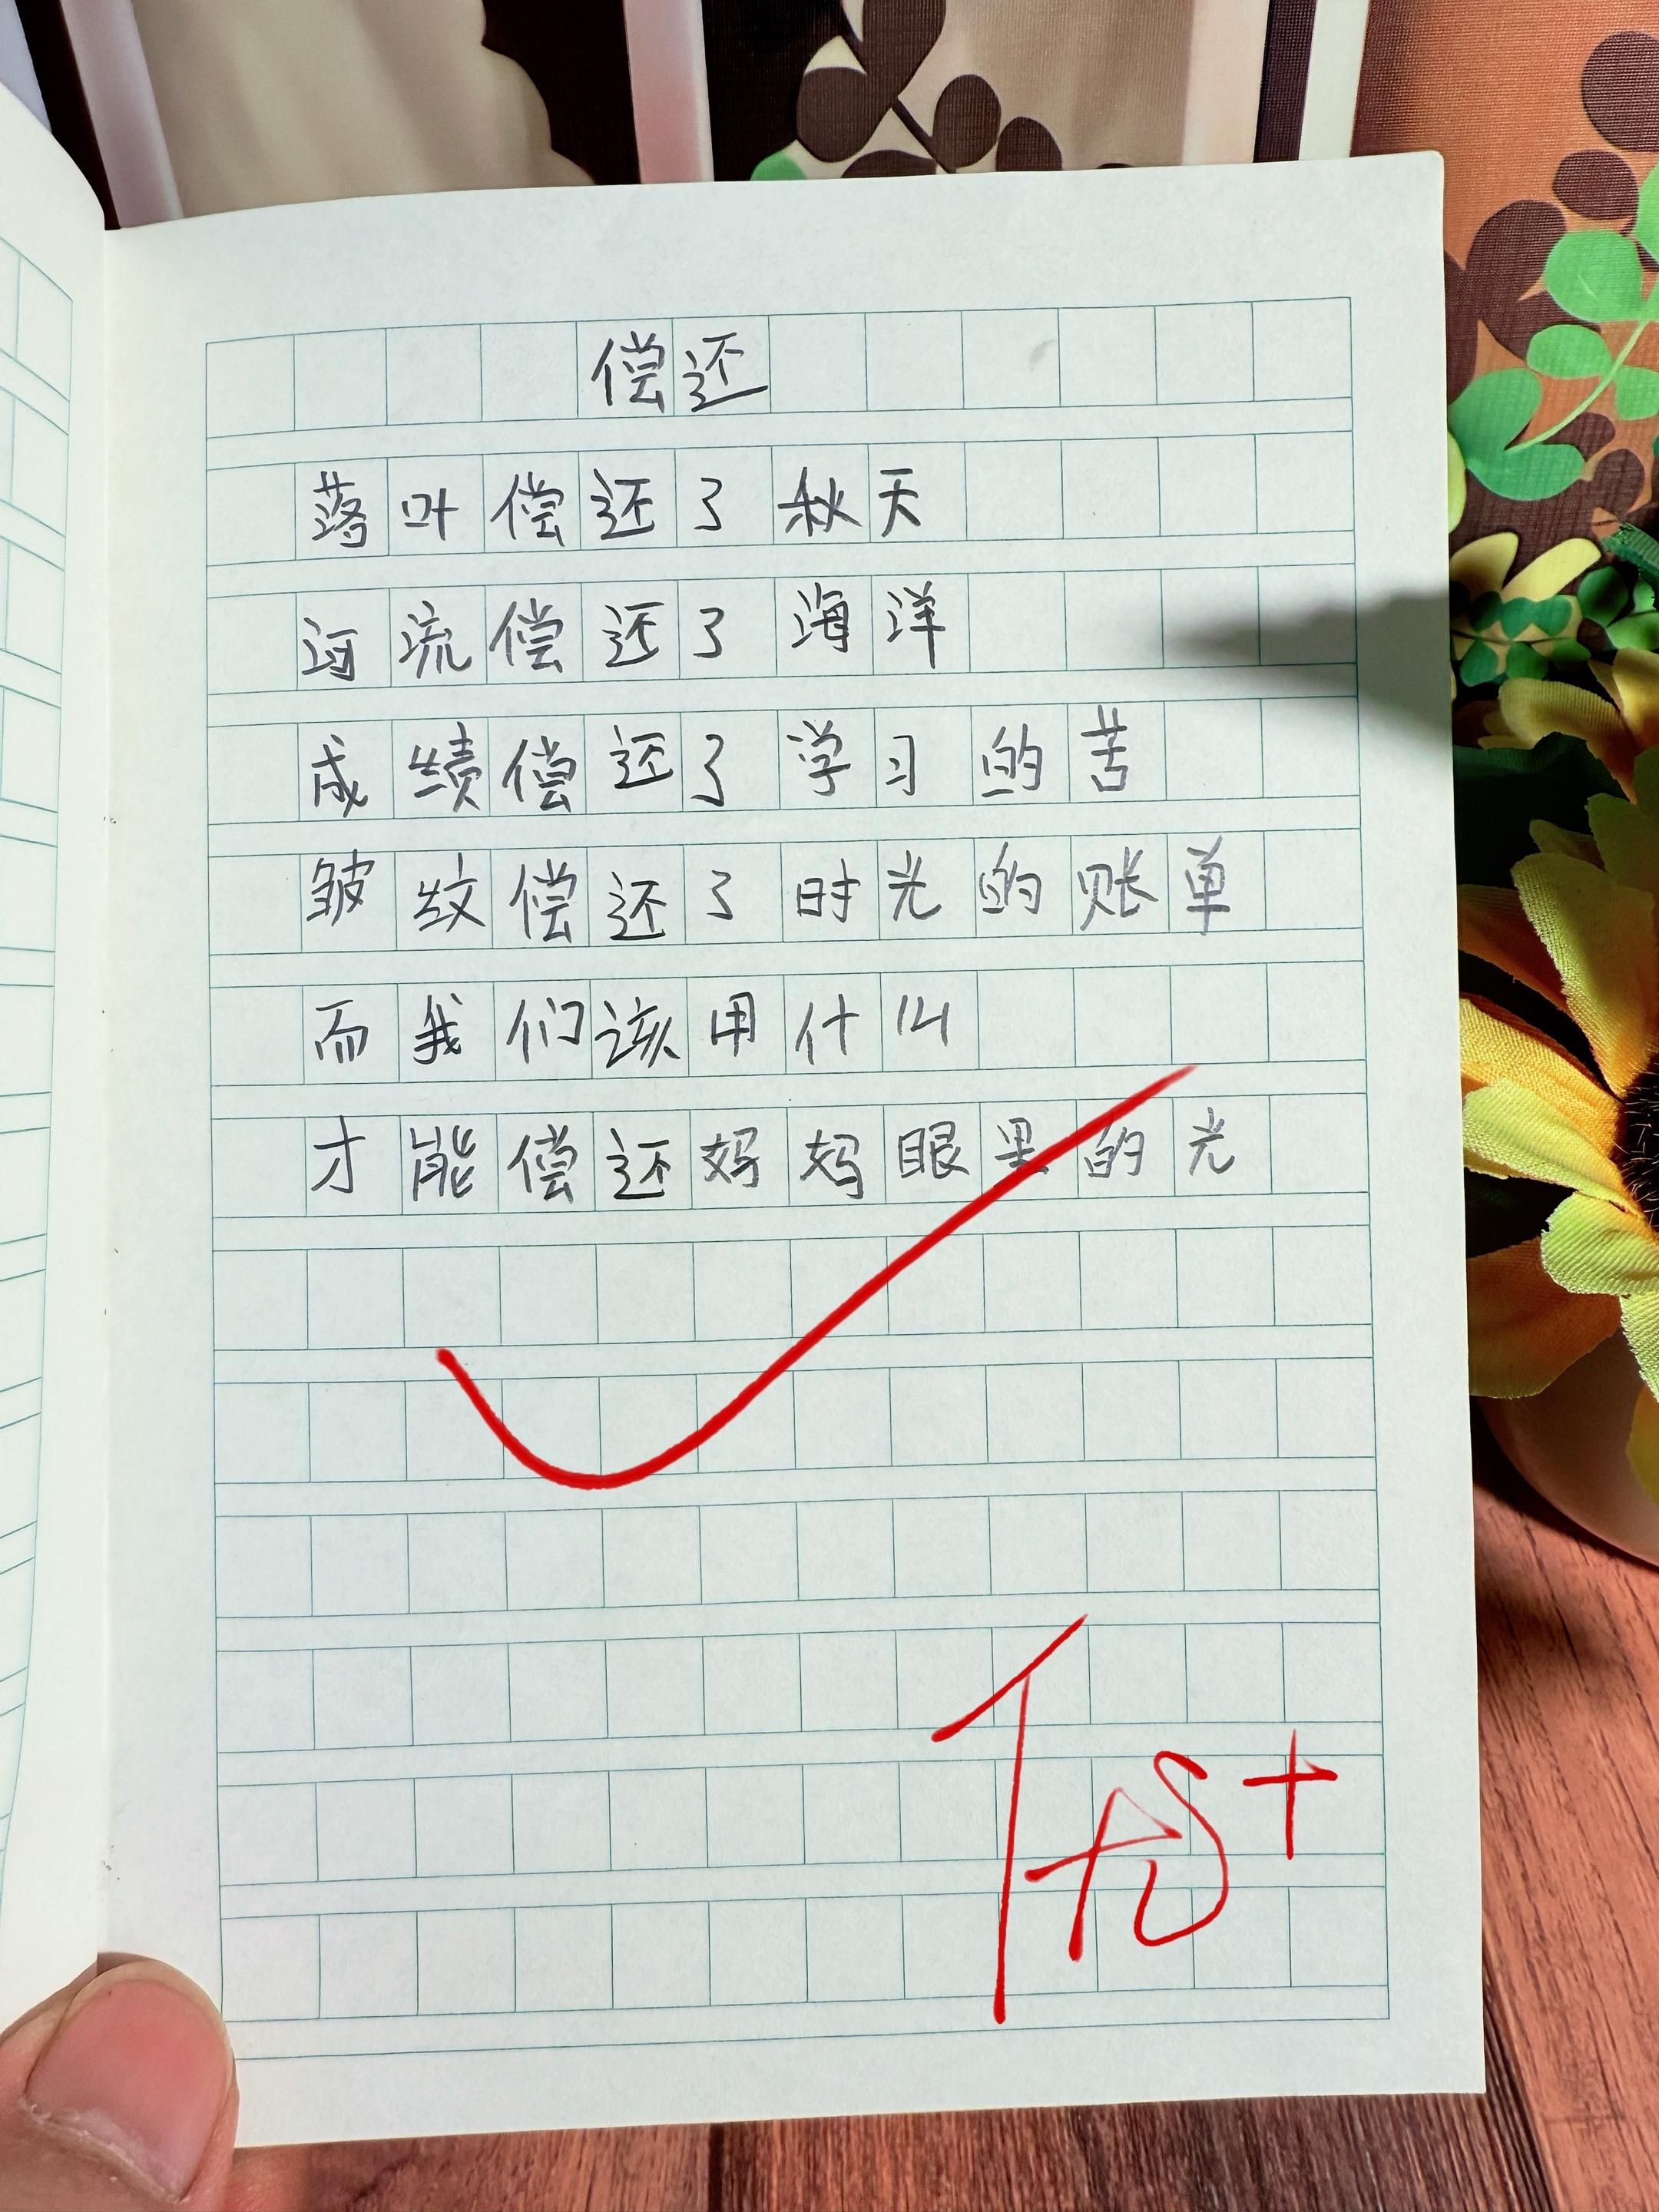 偿还
落叶偿还了秋天
河流偿还了海洋
成绩偿还了学习的苦
皱纹偿还了时光的账单
而我们该用什么
才能偿还妈妈眼里的光